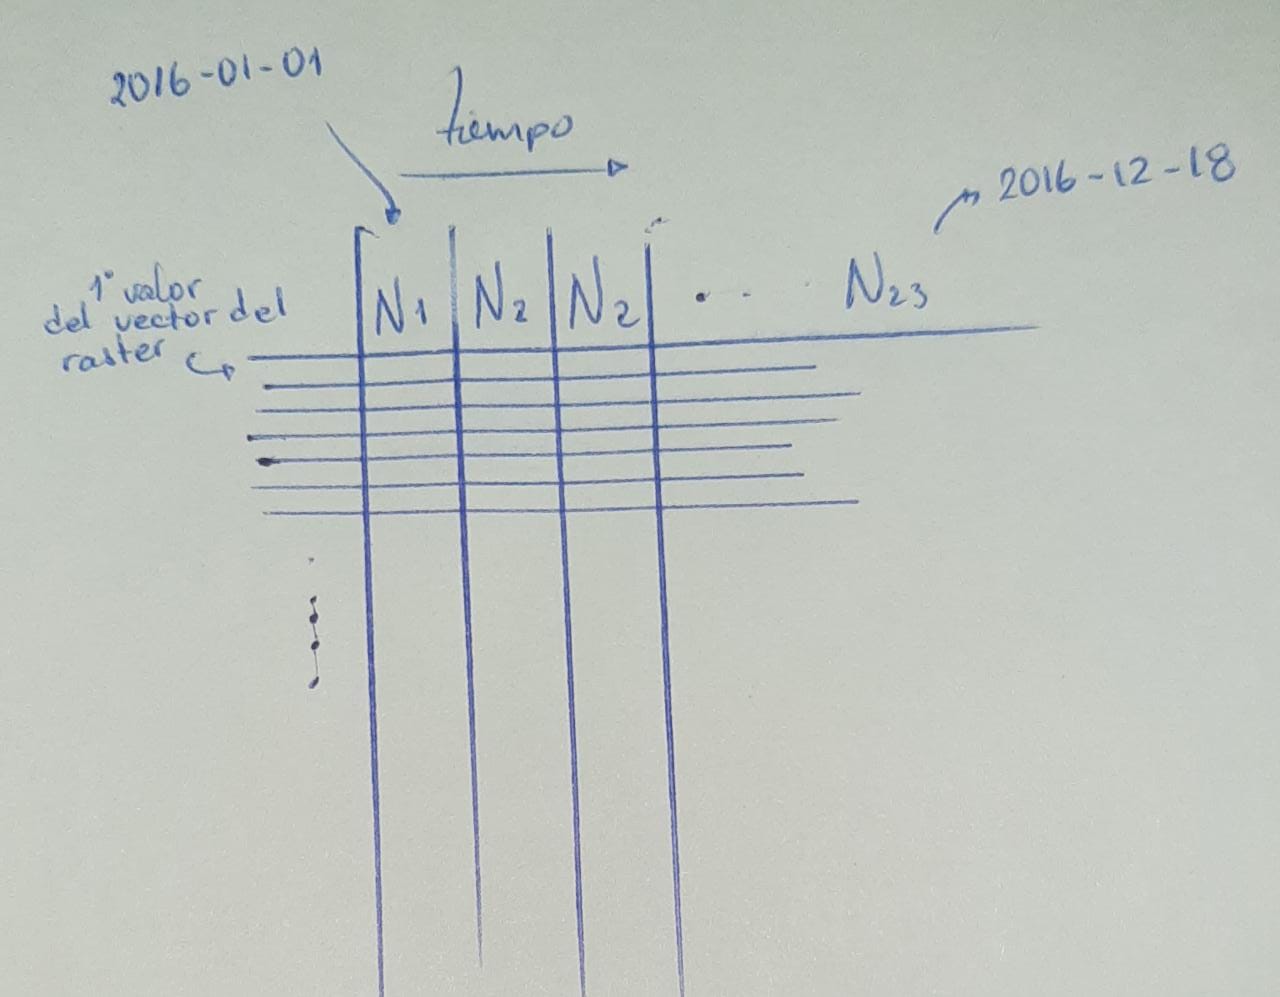 2016-01-01
tiempo
2016-12-18
1° valor
del vector del
raster
N1 N2 N2 ... N23